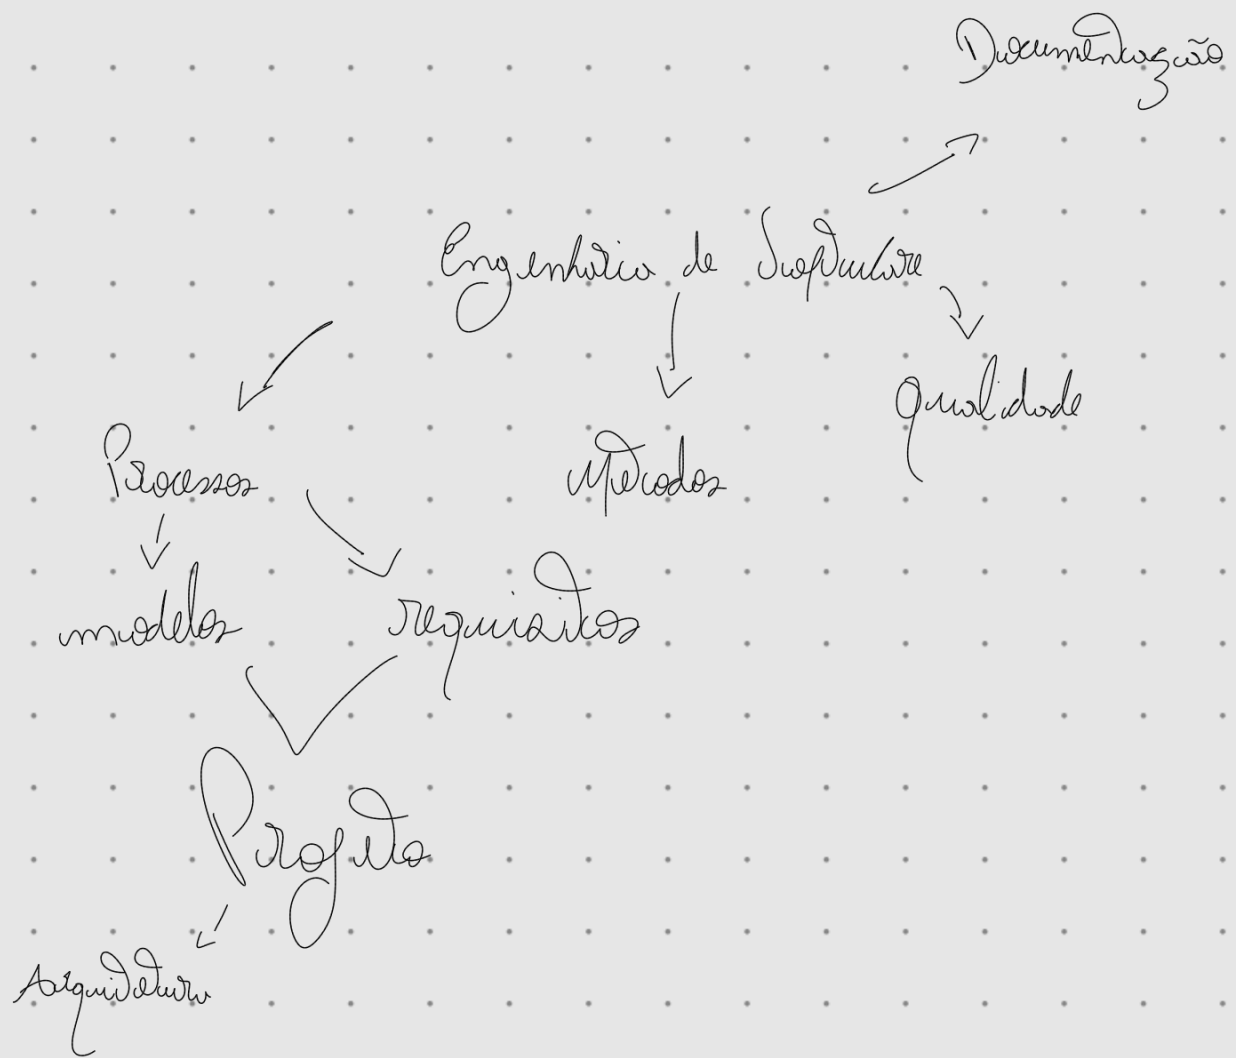 Documentação
Engenharia de Software
qualidade
Processos
Métodos
modelos
requisitos
Projeto
Arquitetura